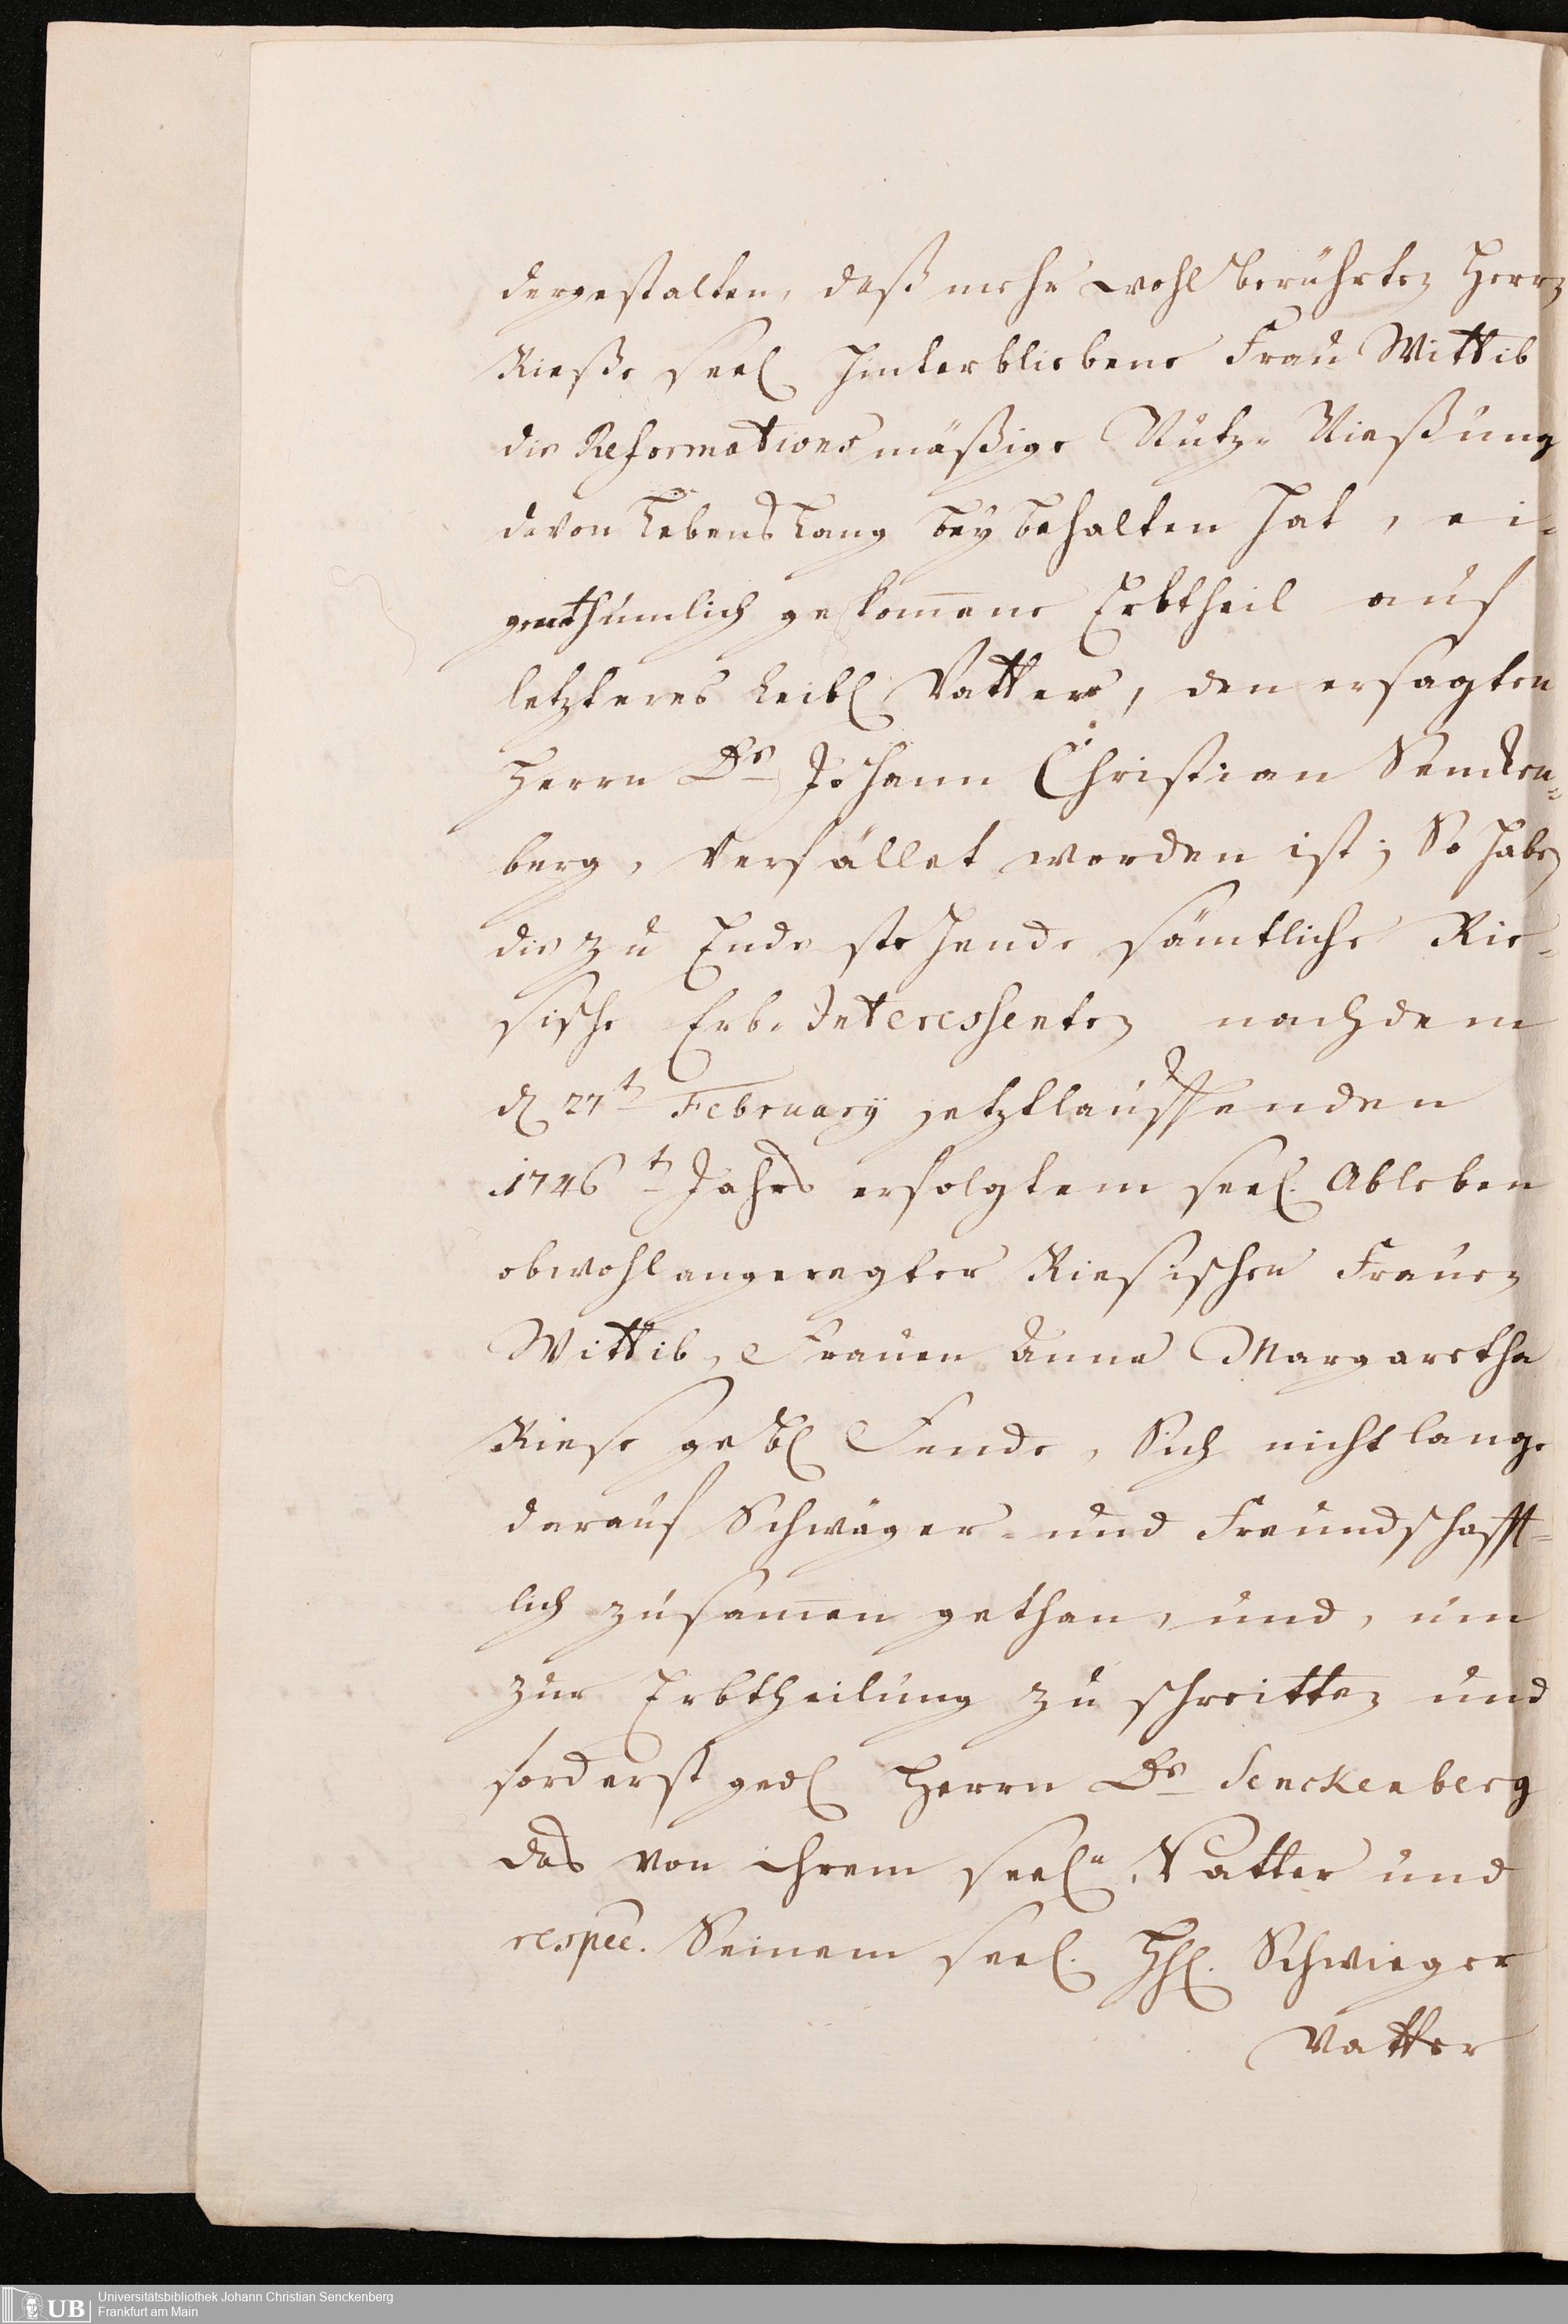 dergestalten, daß mehr wohl berührten Herrn
Rieße seel. hinterbliebene Frau Wittib
die Reformations mäßige Nutz- Nießung
davon Lebens lang beybehalten hat, ei-
genthümlich gekom̅ene Erbtheil auf
letzteres leibl. Vatter, den ersagten
Herrn Dr. Johann Christian Sencken-
berg, verfället worden ist; So haben
die zu Ende stehende sämtliche Rie-
sische Erb-Interessenten nachdem
d. 27t February jetztlauffenden
1746t Jahrs erfolgtem seel. Ableben
obwohlangeregter Riesischen Frauen
Wittib, Frauen Anna Margaretha
Riese geb. Fende, Sich nicht lange
darauf Schwäger- und Freundschafft-
lich zusam̅en gethan, und, um
zur Erbtheilung zu schreitten und
forderst ged. Herrn Dr. Senckenberg
das von ihrem seeln. Vatter und
respec. Seinem seel. HE. Schwieger
Vatter
Universitätsbibliothek Johann Christian Senckenberg
Frankfurt am Main
UB